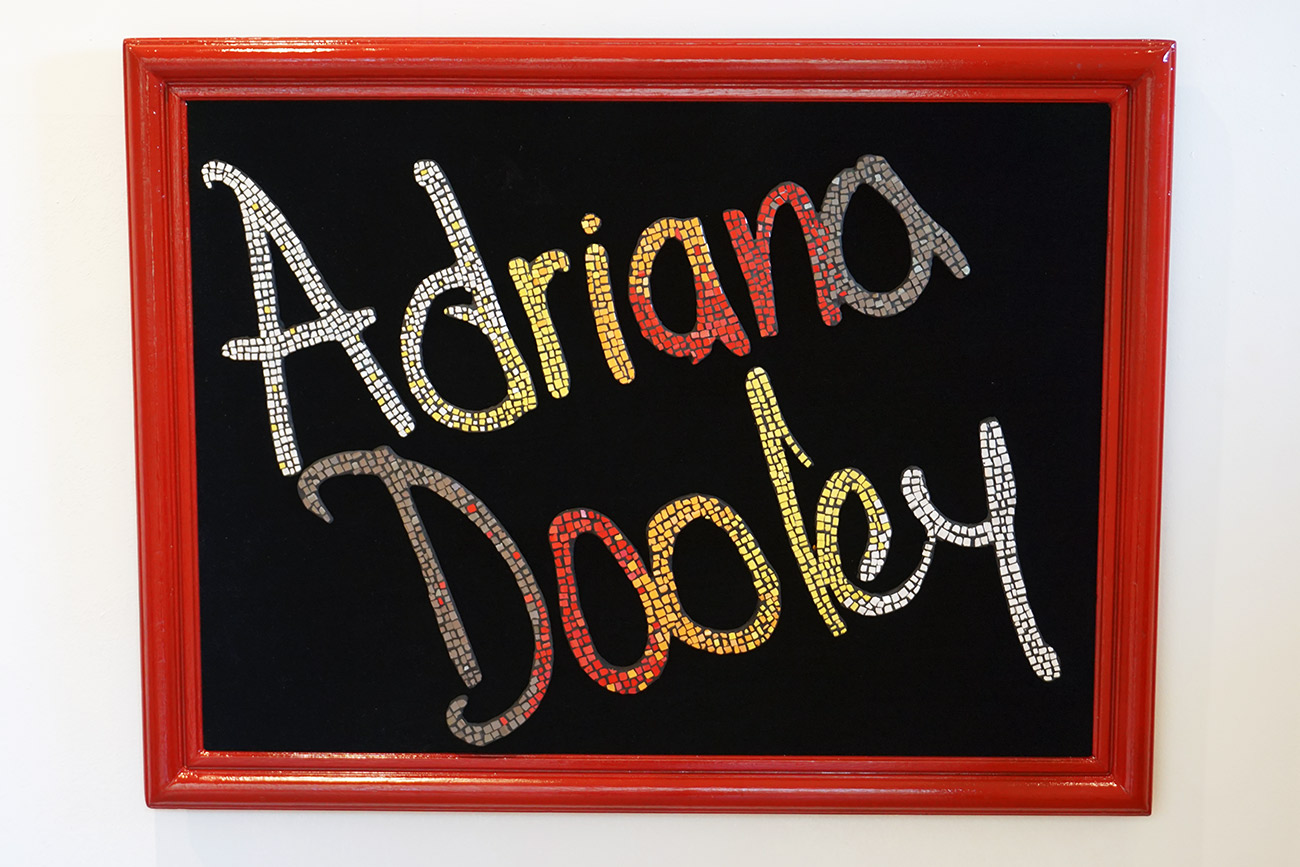 Adriana
Dooley